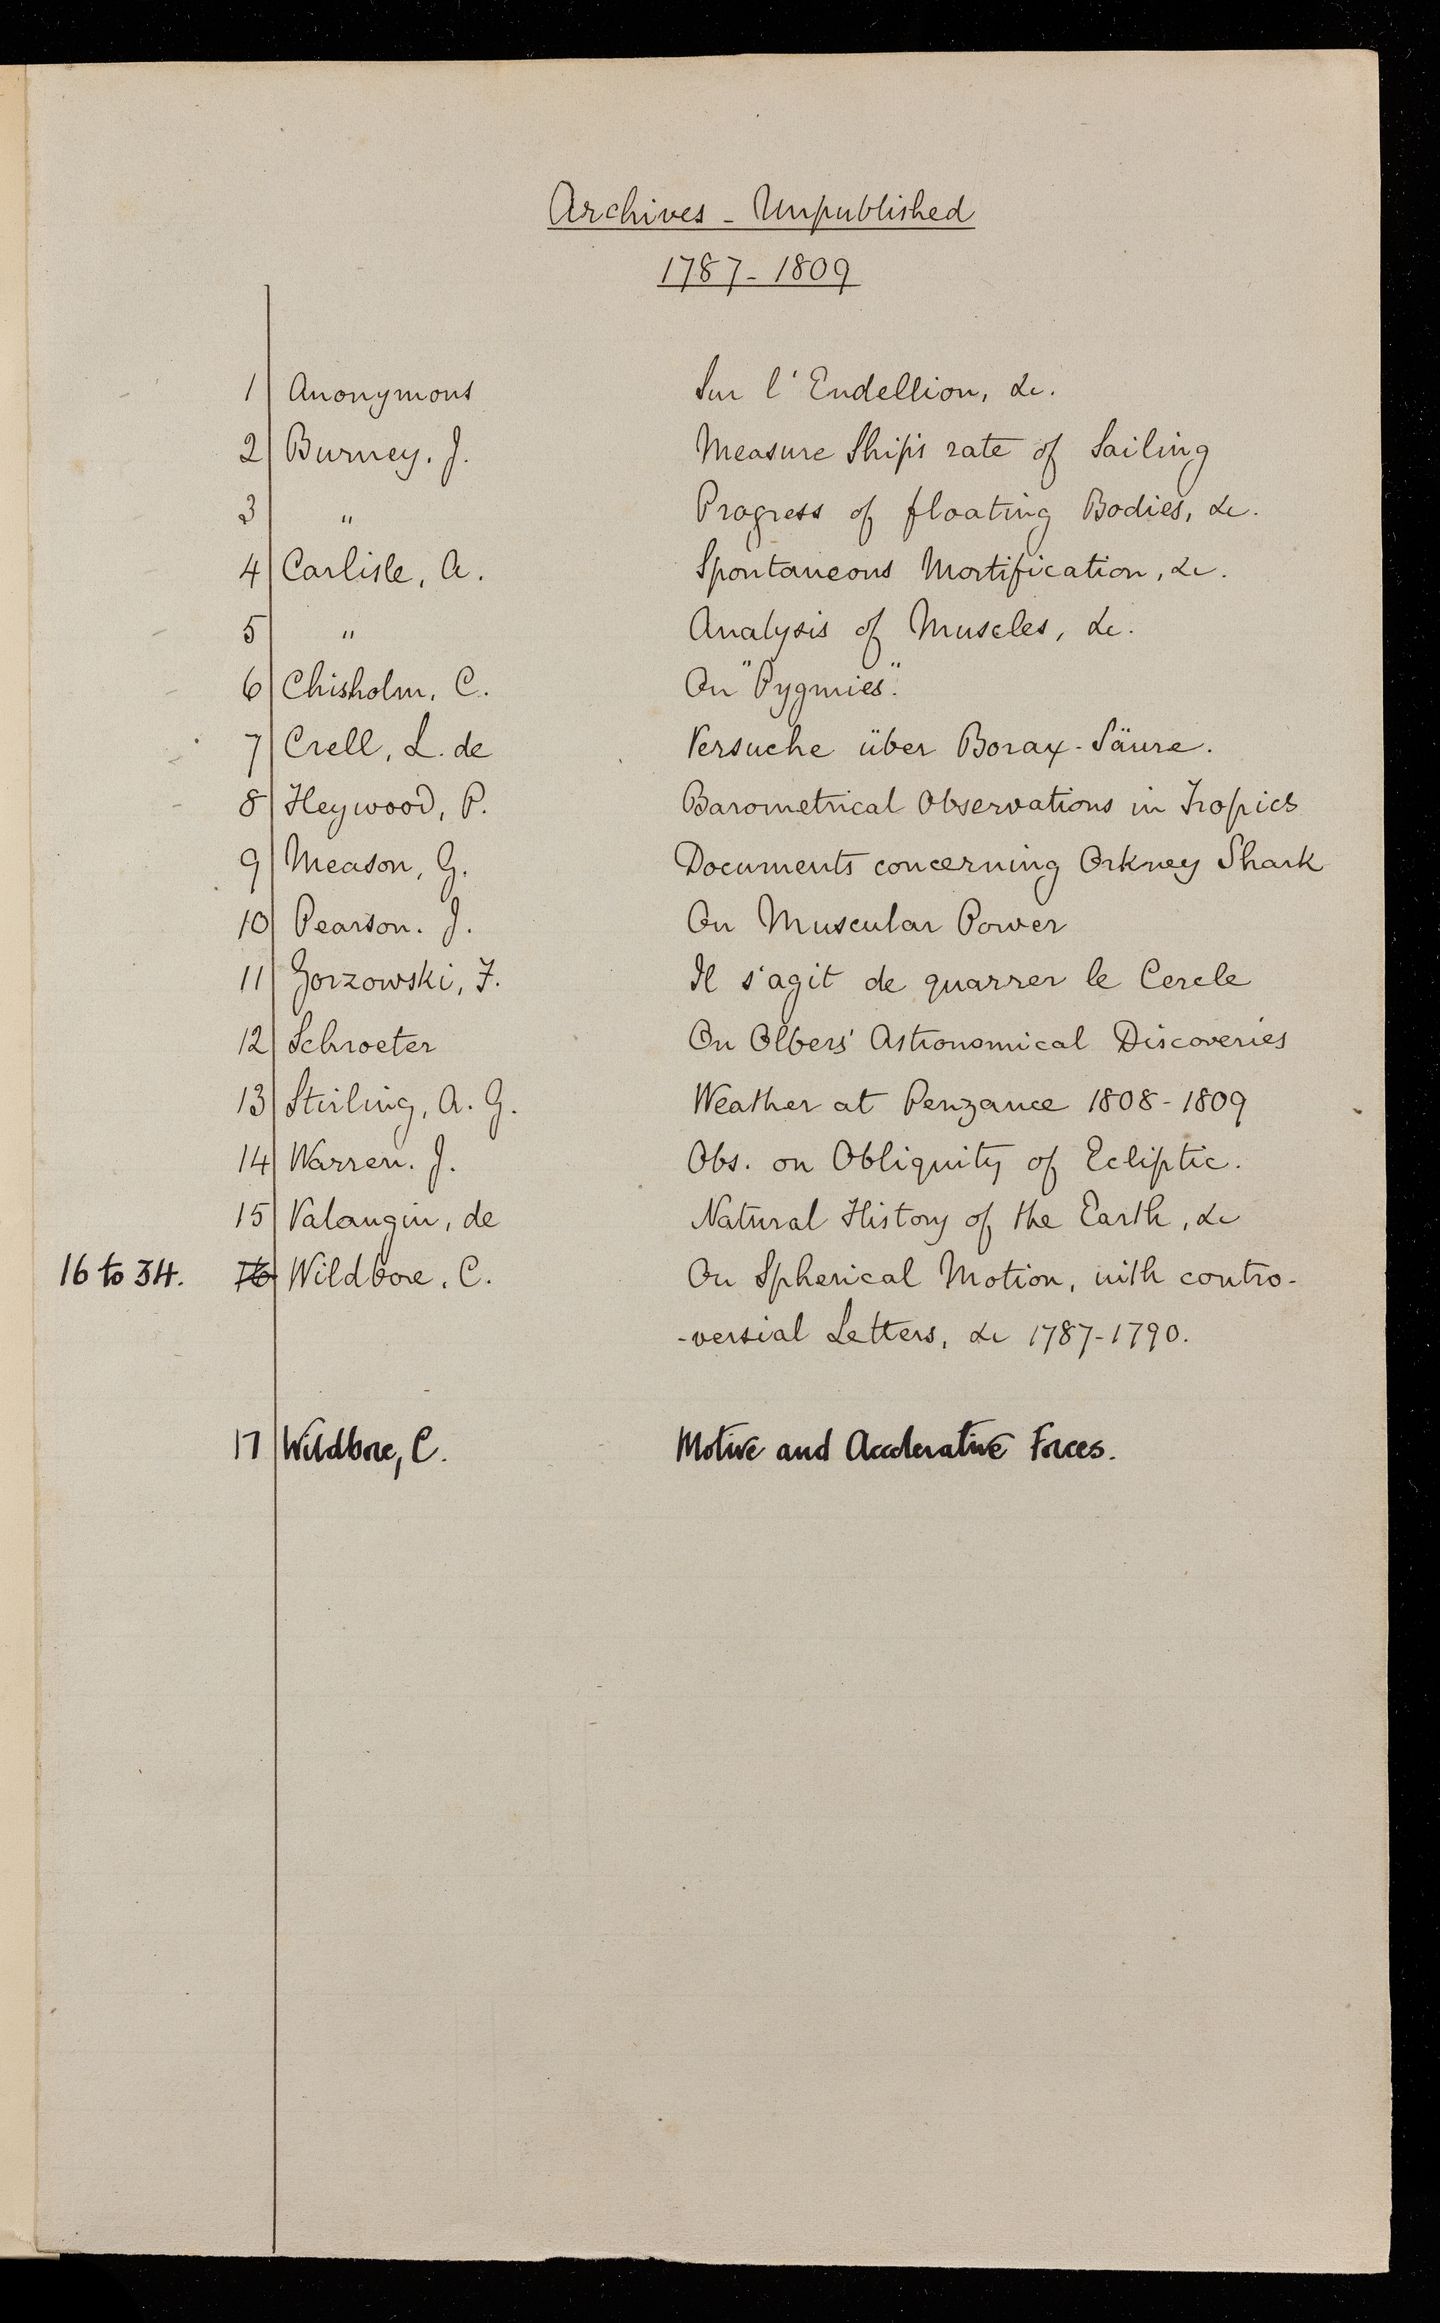 Archives - Unpublished
1787-1809
1 Anonymous Sur l'Endellion, &c.
2 Burney. J. Measure Ship's rate of Sailing
3 " Progress of floating Bodies, &c.
4 Carlisle, A. Spontaneous Mortification, &c.
5 " Analysis of Muscles, &c.
6 Chisholm, C. On "Pygmies".
7 Crell, L. de Versuche über Borax-Säure.
8 Heywood, P. Barometrical Observations in Tropics
9 Meason, G. Documents concerning Orkney Shark
10 Pearson. J. On Muscular Power
11 Gorzowski, F. Il s'agit de quarrer le Cercle
12 Schroeter On Olbers' Astronomical Discoveries
13 Stirling, A. G. Weather at Penzance 1808-1809
14 Warren. J. Obs. on Obliquity of Ecliptic.
15 Valangin, de Natural History of the Earth, &c
16 to 34. 16 Wildbore, C. On Spherical Motion, with contro-
-versial Letters, &c 1787-1790.
17 Wildbore, C. Motive and Accelerative Forces.